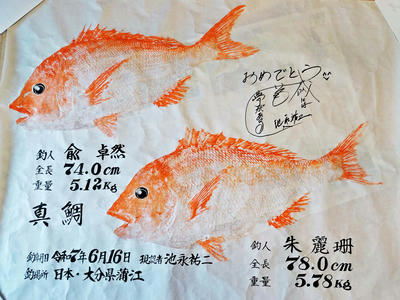 おめでとう
池永祐二
釣人 兪 卓然
全長 74.0cm
重量 5.12Kg
真鯛
釣行日 令和7年6月16日 現認者 池永祐二
釣場所 日本・大分県蒲江
釣人 朱麗珊
全長 78.0cm
重量 5.78Kg